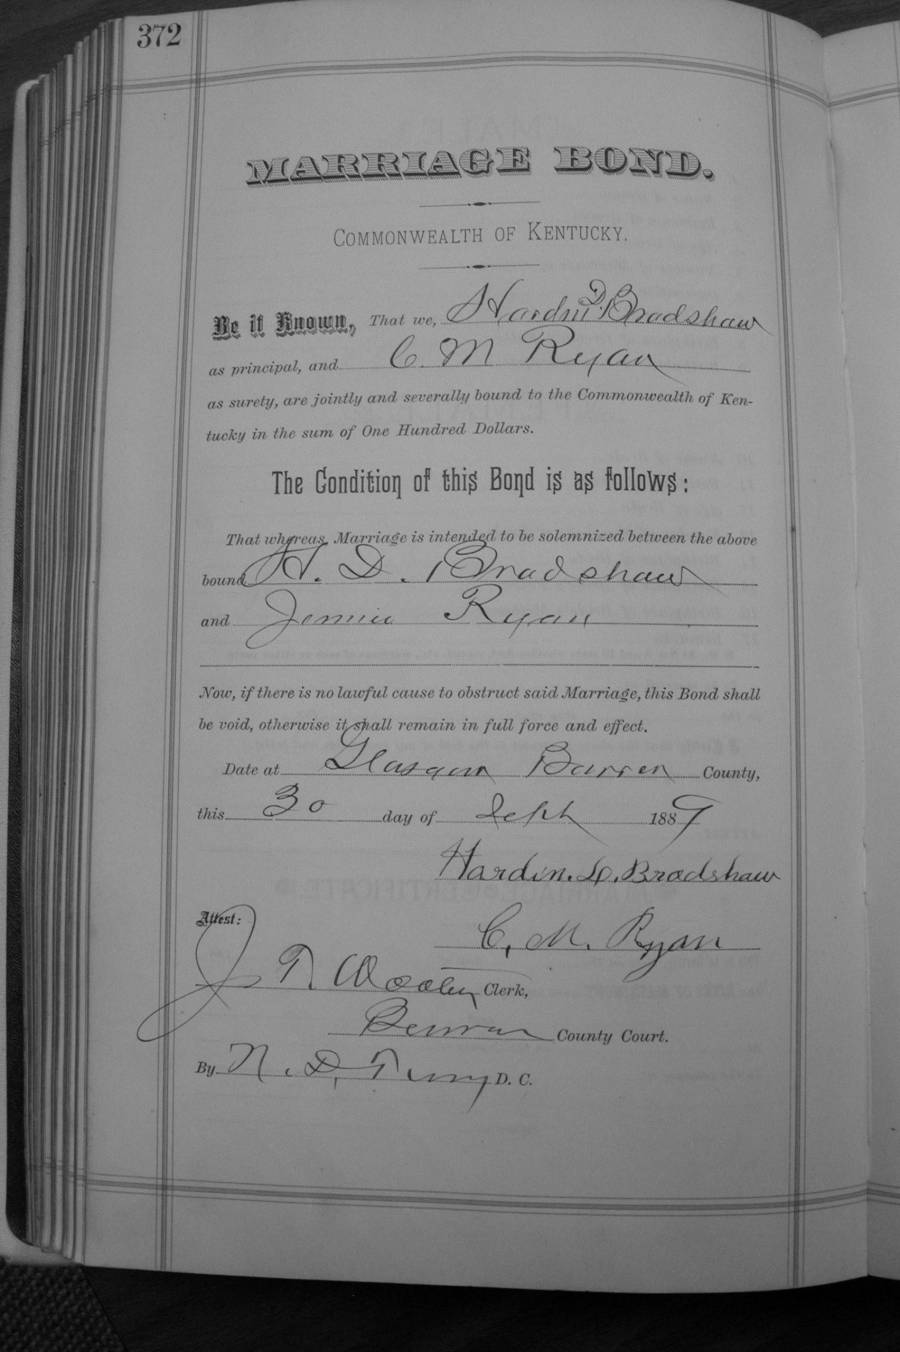 372
MARRIAGE BOND.
COMMONWEALTH OF KENTUCKY.
Be it Known, That we, Hardin D Bradshaw
as principal, and C. M Ryan
as surety, are jointly and severally bound to the Commonwealth of Ken-
tucky in the sum of One Hundred Dollars.
The Condition of this Bond is as follows:
That whereas, Marriage is intended to be solemnized between the above
bound H. D. Bradshaw
and Jennie Ryan
Now, if there is no lawful cause to obstruct said Marriage, this Bond shall
be void, otherwise it shall remain in full force and effect.
Date at Glasgow Barren County,
this 30 day of Sept 1889
Hardin. D. Bradshaw
Attest:
C. M. Ryan
J. T. Wooten Clerk,
Barren County Court.
By N. D. Terry D. C.